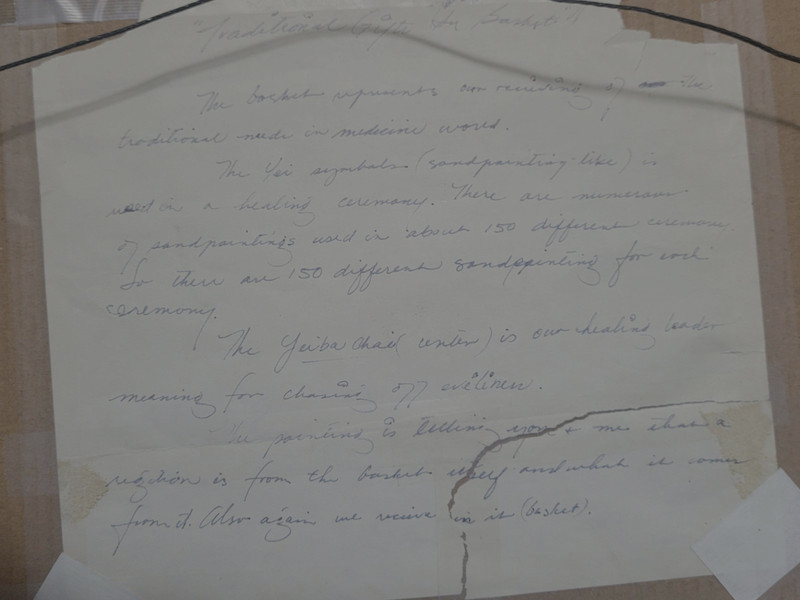 "Traditional Gifts In Basket"
The basket represents our recieving of the
traditional needs in medicine world.
The Yei symbols (sandpainting-like) is
used in a healing ceremony. There are numerous
of sandpaintings used in about 150 different ceremony.
So there are 150 different sandpainting for each
ceremony.
The Yeibachai (center) is our healing leader
meaning for chasing off evilness.
The painting is telling you & me that a
is from the basket itself and what it comes
from it. Also again we recieve in it (basket).